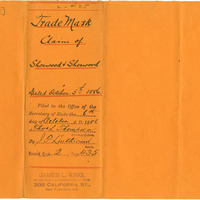 Trade Mark
Claim of
Sherwood & Sherwood
Dated October 5th 1886
Filed in the Office of the
Secretary of State the 6th
day of October A.D. 1886
Thos L. Thompson
By J.
Record Book 2 Page 435
JAMES L. KING,
308 CALIFORNIA ST.,
San Francisco, Cal.